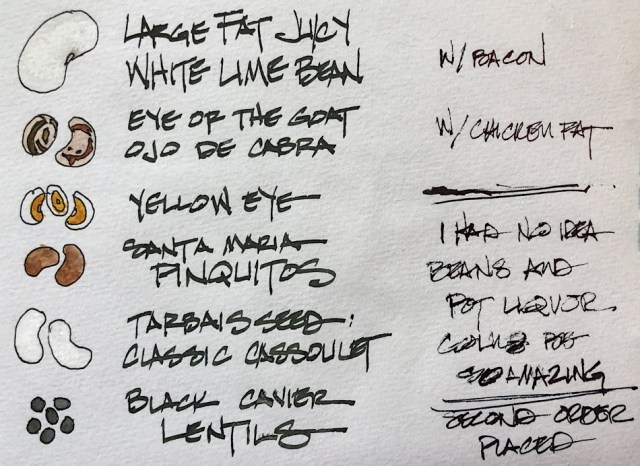 LARGE FAT JUICY
WHITE LIME BEAN
W/BACON
EYE OF THE GOAT
OJO DE CABRA
W/CHICKEN FAT
YELLOW EYE
SANTA MARIA
PINQUITOS
TARBAIS SEED:
CLASSIC CASSOULET
BLACK CAVIER
LENTILS
I HAD NO IDEA
BEANS AND
POT LIQUOR
COULD
SO AMAZING
SECOND ORDER
PLACED